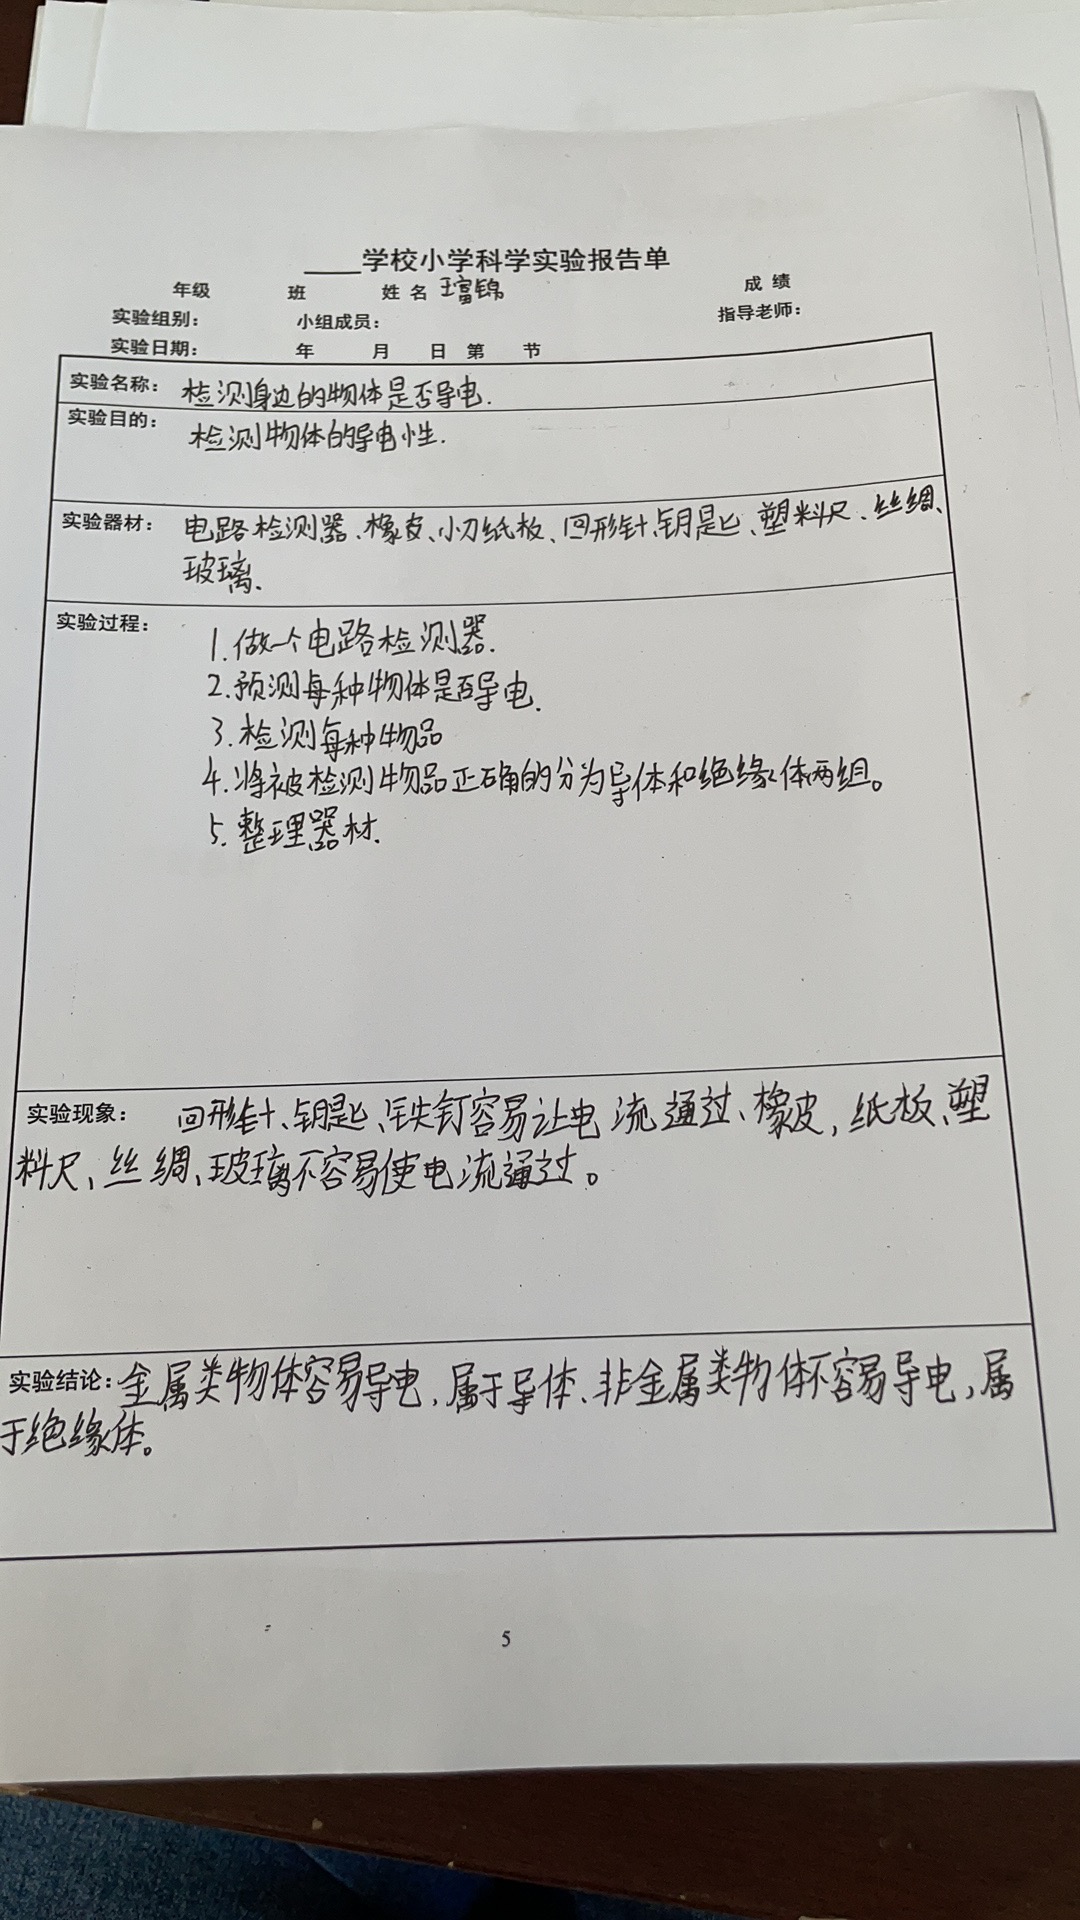 ____学校小学科学实验报告单
年级 班 姓名 王富锦 成绩
实验组别： 小组成员： 指导老师：
实验日期： 年 月 日 第 节
实验名称： 检测身边的物体是否导电.
实验目的： 检测物体的导电性.
实验器材： 电路检测器、橡皮、小刀纸板、回形针、钥匙、塑料尺、丝绸、
玻璃.
实验过程： 1.做一个电路检测器.
2.预测每种物体是否导电.
3.检测每种物品
4.将被检测物品正确的分为导体和绝缘体两组。
5.整理器材.
实验现象： 回形针、钥匙、铁钉容易让电流通过、橡皮，纸板、塑
料尺、丝绸、玻璃不容易使电流通过。
实验结论：金属类物体容易导电，属于导体、非金属类物体不容易导电，属
于绝缘体。
5